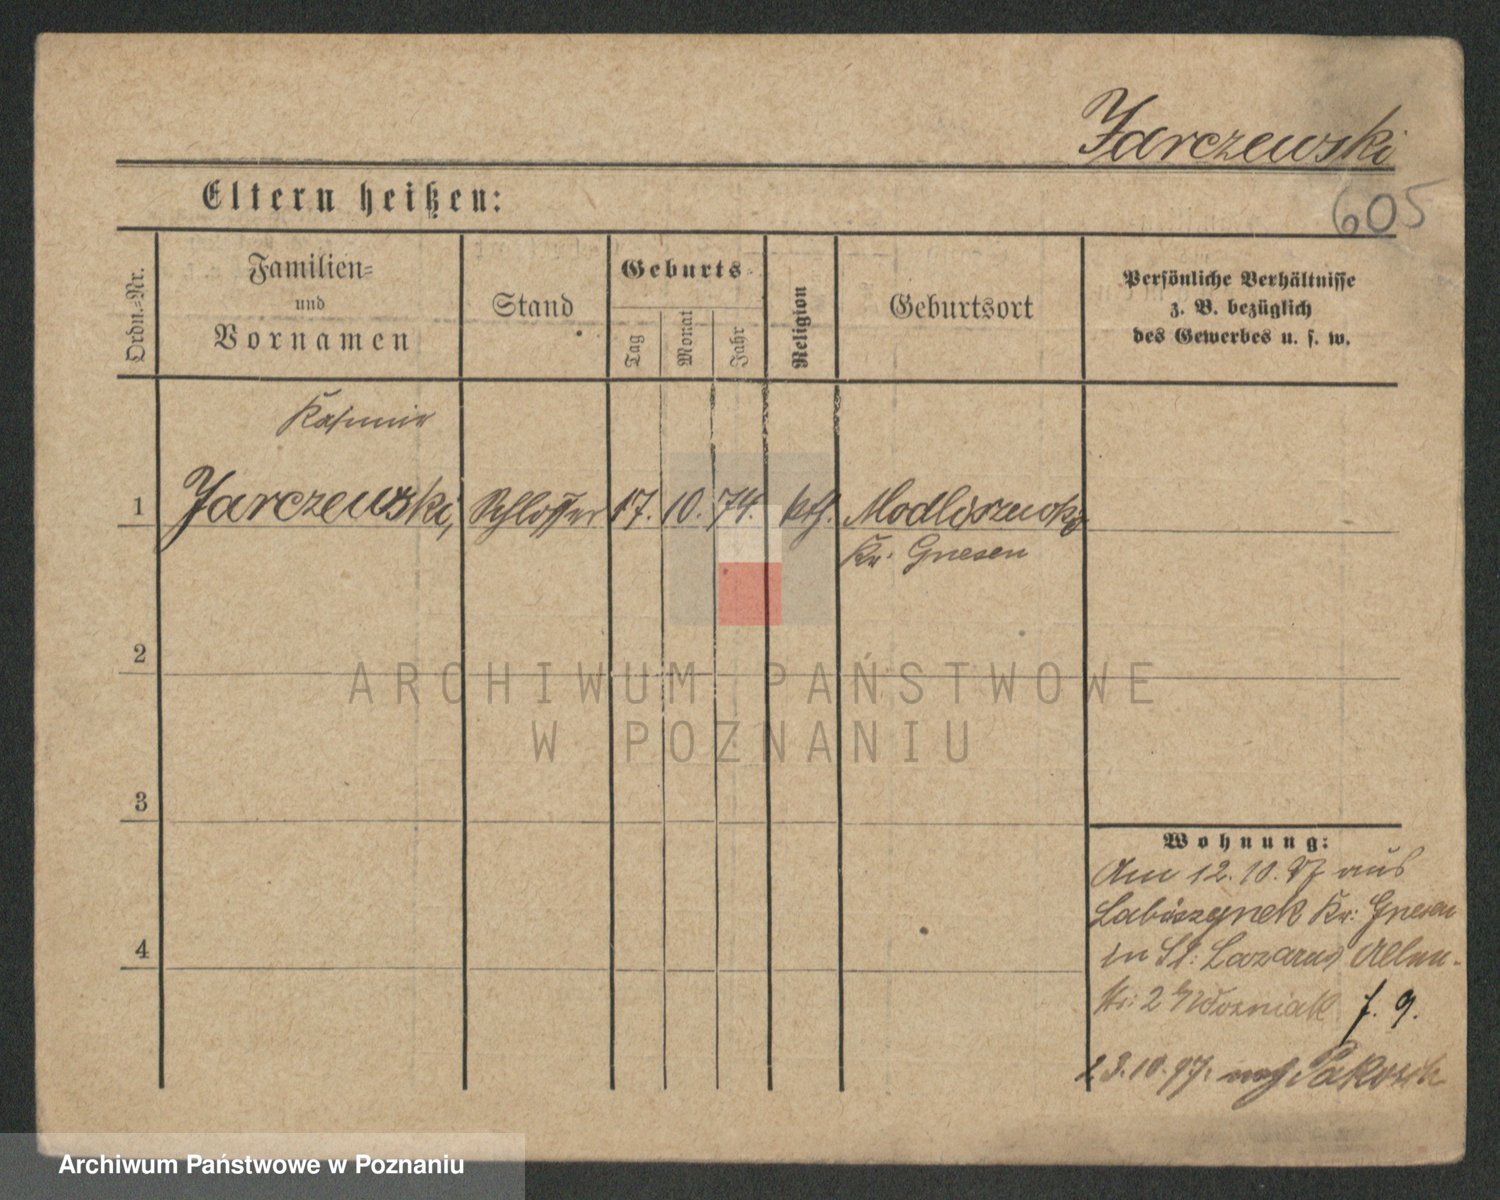 Jarczewski
605
Eltern heißen:
Ordn.=Nr.
Familien=
und
Vornamen
Stand
Geburts=
Tag
Monat
Jahr
Religion
Geburtsort
Persönliche Verhältnisse
z. B. bezüglich
des Gewerbes u. s. w.
Kasimir
1 Jarczewski, Schlosser 17. 10. 74. kth. Modliszewko
Kr. Gnesen
2
ARCHIWUM PAŃSTWOWE
W POZNANIU
3
Wohnung:
Am 12.10.97 aus
Labiszynek Kr: Gnesen
in St: Lazarus
str: 2 b/ Wozniak f. 9.
4
23.10.97. nach Pakosch
Archiwum Państwowe w Poznaniu